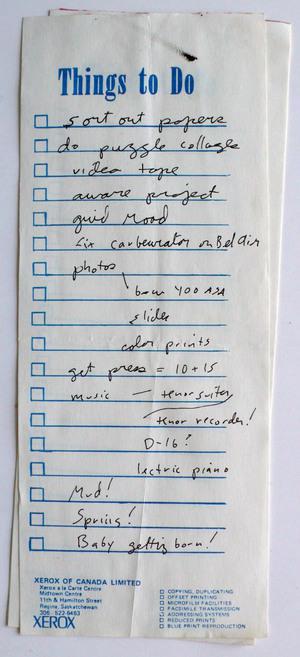 Things to Do
sort out papers
do puzzle collages
video tape
aware project
grid mood
fix carbeurator on Bel Air
photos
b&w 400 ASA
slides
color prints
get press = 10 + 15
music — tenor suites
tenor recorder!
D-16?
lectric piano
Mud!
Spring!
Baby getting born!
XEROX OF CANADA LIMITED
Xerox a la Carte Centre
Midtown Centre
11th & Hamilton Street
Regina, Saskatchewan
306 522-6463
XEROX
COPYING, DUPLICATING
OFFSET PRINTING
MICROFILM FACILITIES
FACSIMILE TRANSMISSION
ADDRESSING SYSTEMS
REDUCED PRINTS
BLUE PRINT REPRODUCTION